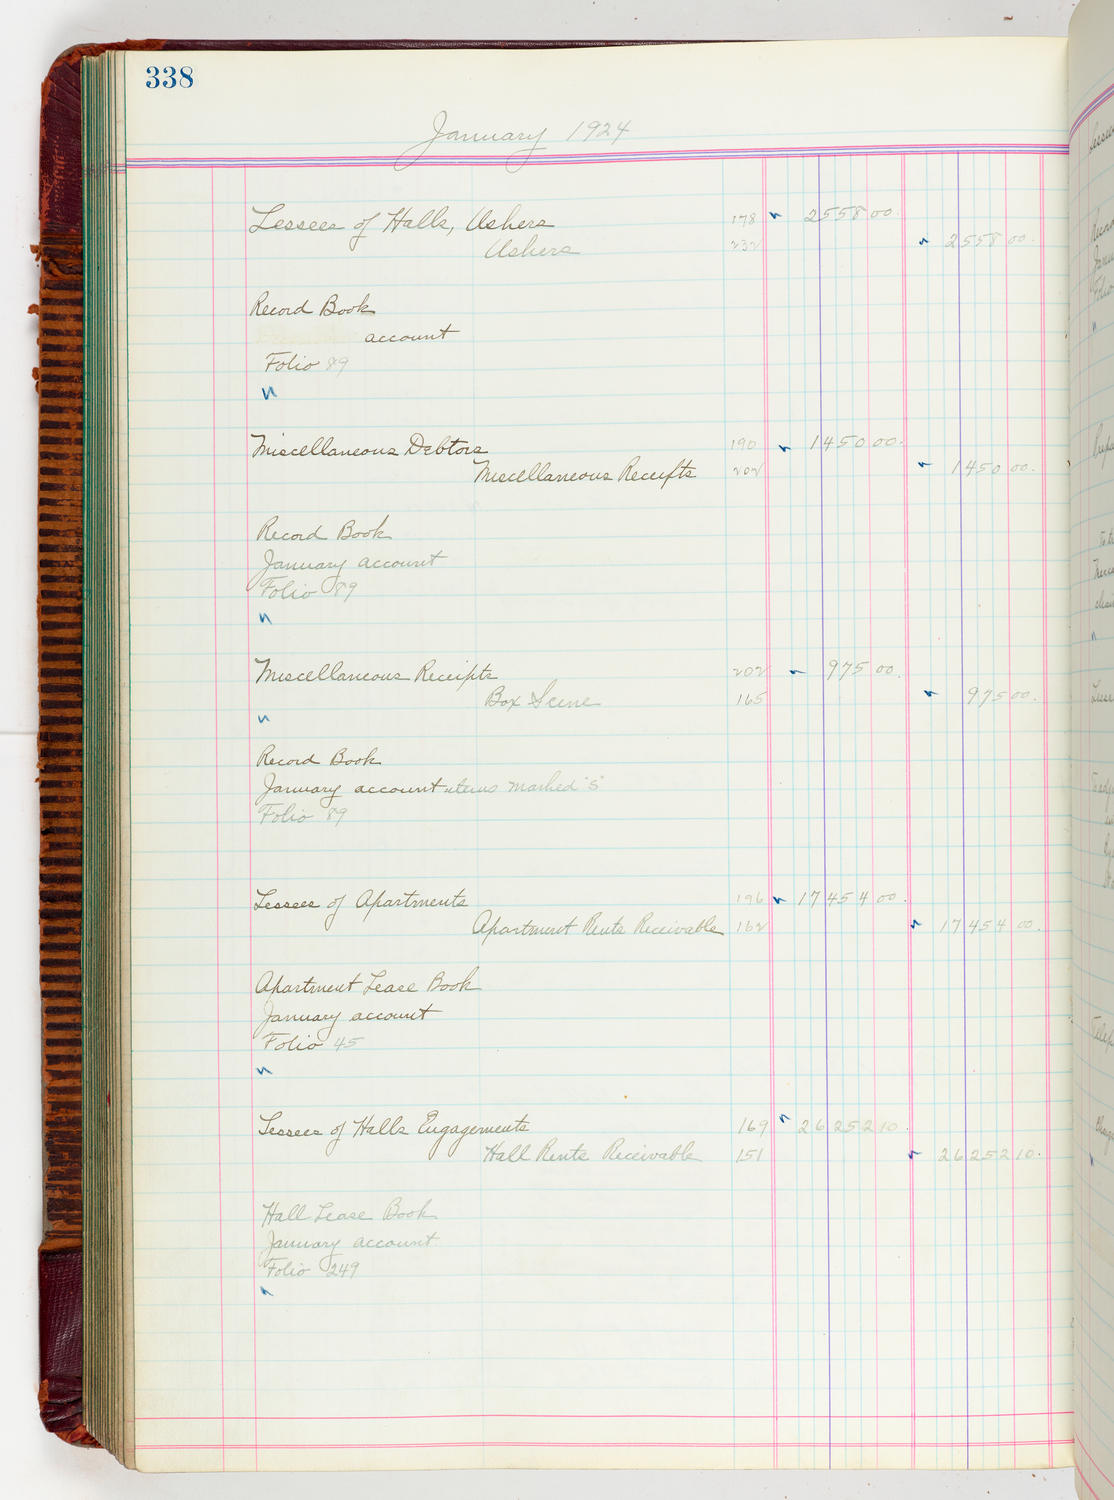 338
January 1924
Lessees of Halls, Ushers 178 2558 00
Ushers 232 2558 00
Record Book
account
Folio 89
Miscellaneous Debtors 190 1450 00
Miscellaneous Receipts 202 1450 00
Record Book
January account
Folio 89
Miscellaneous Receipts 202 975 00
Box Scene 165 975 00
Record Book
January account items marked "S"
Folio 89
Lessees of Apartments 196 17454 00
Apartment Rents Receivable 162 17454 00
Apartment Lease Book
January account
Folio 45
Lessees of Halls Engagements 169 26252 10
Hall Rents Receivable 151 26252 10
Hall Lease Book
January account
Folio 249